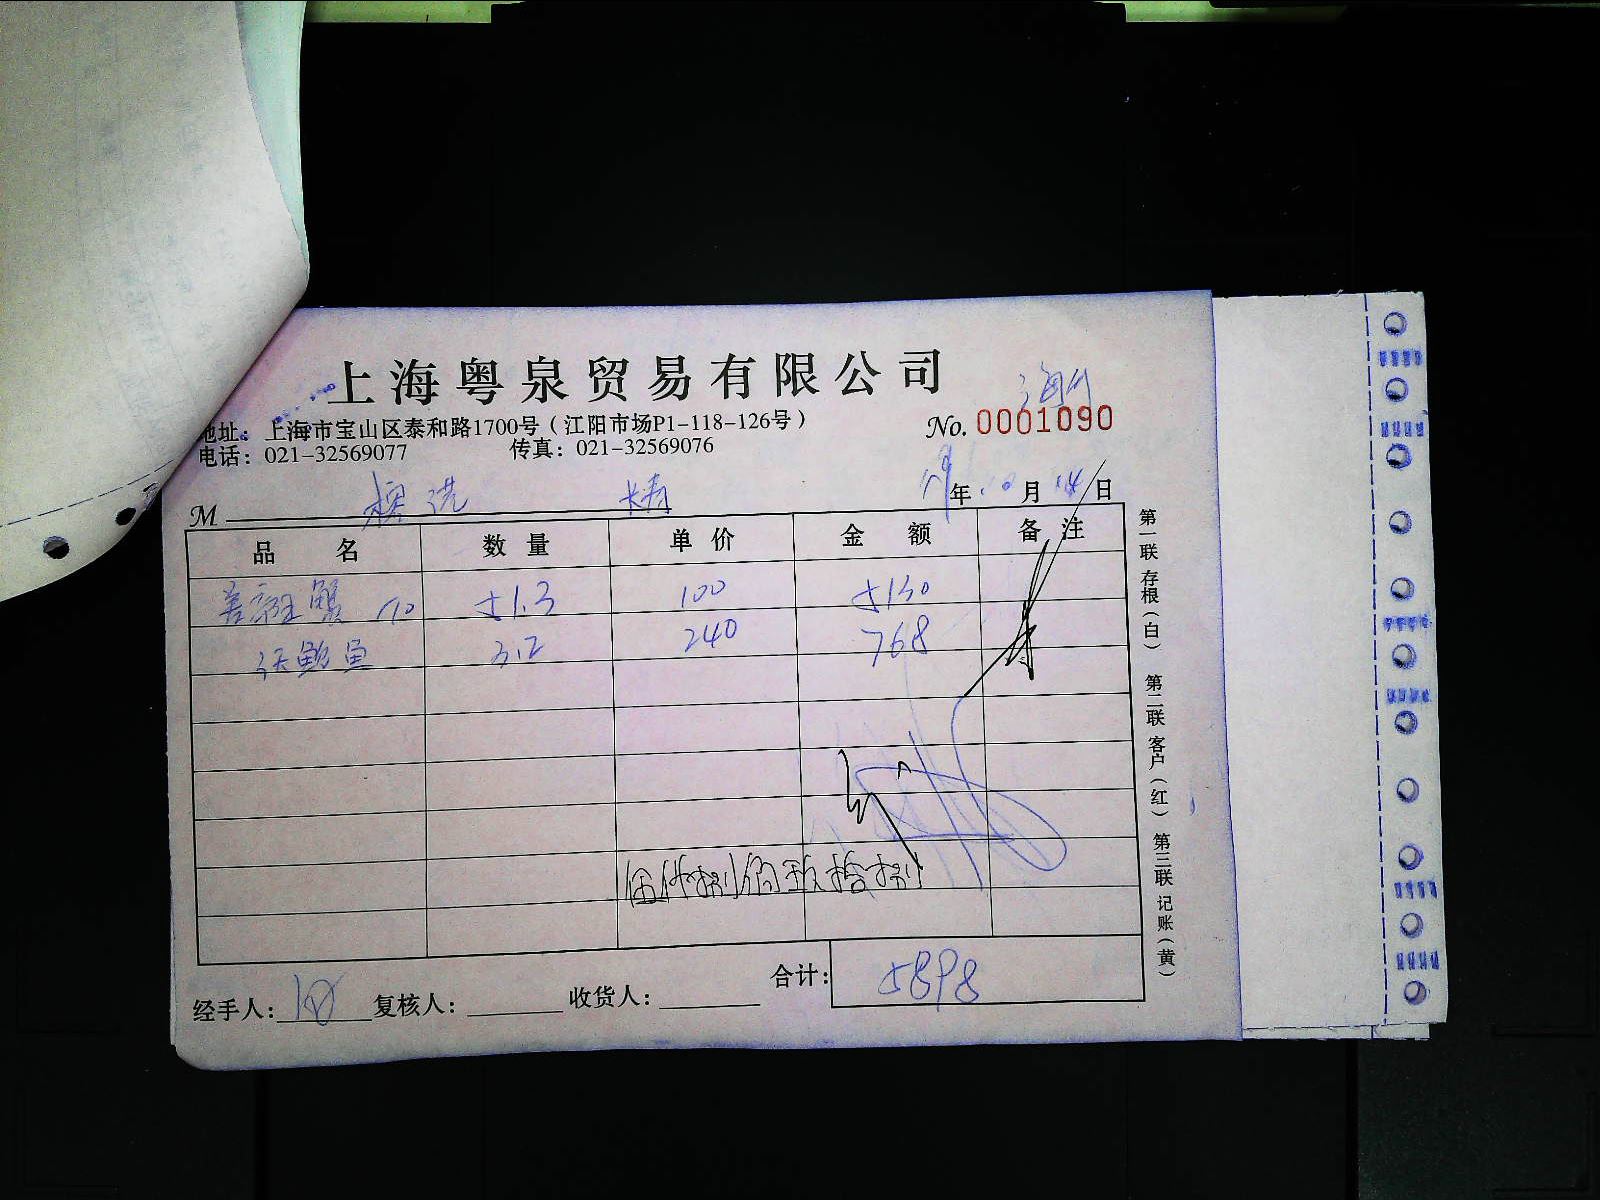 上海粤泉贸易有限公司
地址：上海市宝山区泰和路1700号（江阳市场P1-118-126号）
No. 0001090
电话：021-32569077 传真：021-32569076
M 年 10 月 14 日
品名 数量 单价 金额 备注
51.3 100 5130
活鲍鱼 3.2 240 768
伍仟捌佰玖拾捌
合计： 5898
经手人： 复核人： 收货人：
第一联 存根（白） 第二联 客户（红） 第三联 记账（黄）